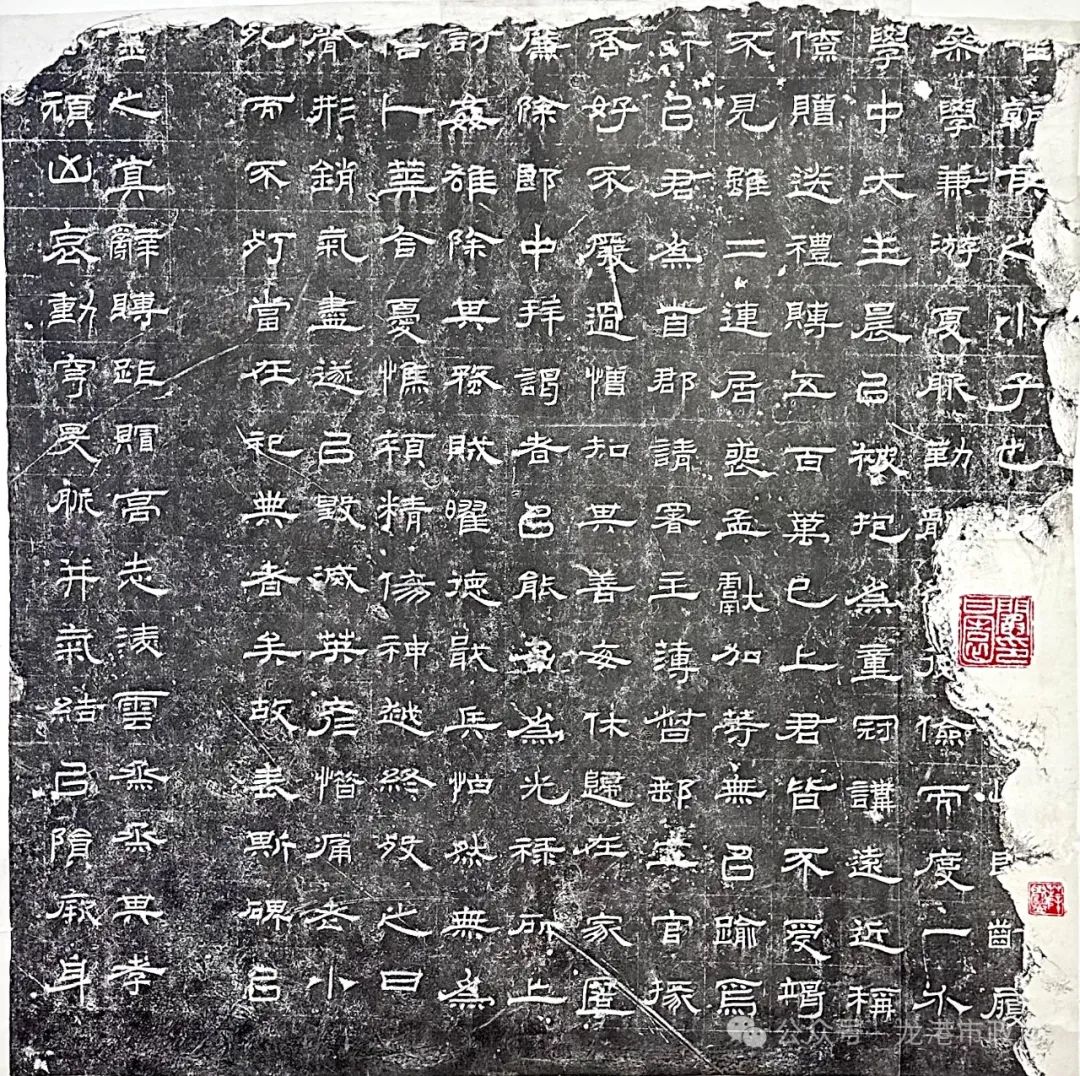 朝侯之小子也 齒履
參學兼游夏服勤 儉而度一介
學中大主晨以被抱為童冠講遠近稱
僚贈送禮賻五百萬已上君皆不受竭
不見雖二連居喪孟獻加等無以踰焉
行已君為首郡請署主薄督郵五官掾
否好不廢過憎知其善每休歸在家匿
廉除郎中拜謁者以能名為光祿所上
討姦雄除其蟊賊曜德戢兵怗然無為
占人葬舍憂憔顇精傷神越終歿之日
骨形銷氣盡遂以毀滅英彥惜痛老小
死而不朽當在祀典者矣故表斯碑以
之真辭賻距賵高志淩雲烝烝其孝
禎凶哀動穹旻脈并氣結以隕厥身
公众号 龙港市